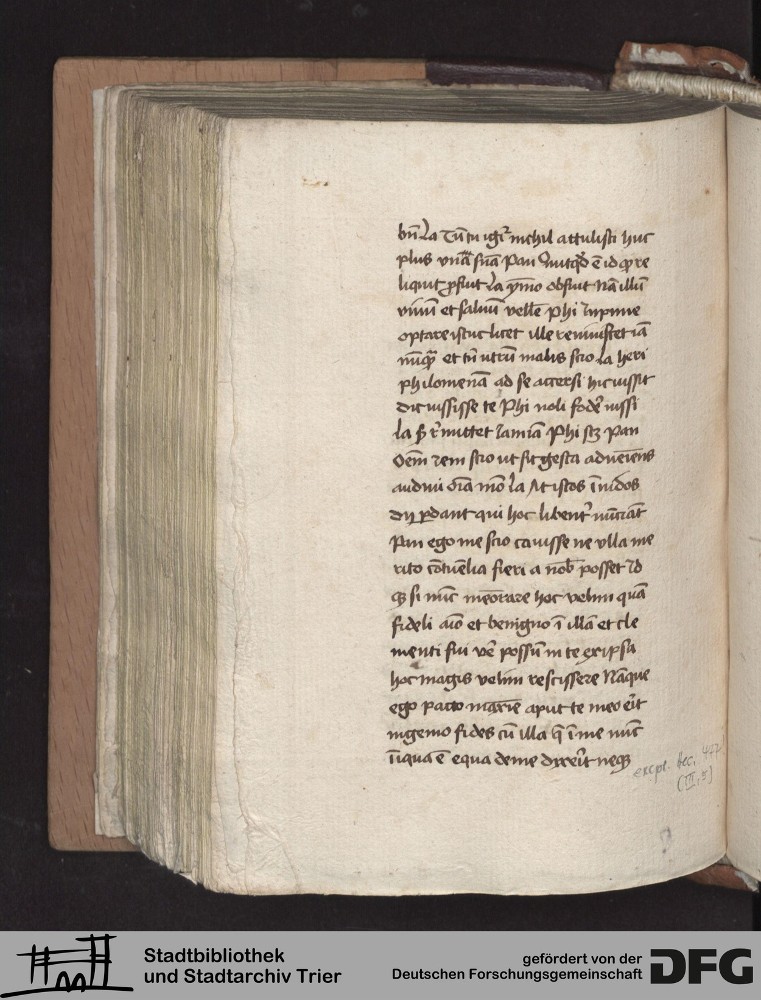 bn̄ La Tū tu igr̄ nichil attulisti huc
plus vnā snīa Pan quitqd ē id qd re
liquit ꝓfuit La ymo obfuit Nā illū
viuū et saluū vellē Phi Inpune
optare istuc licet ille reuiuiscet iā
nūqꝫ et tn̄ utrū malis scio La heri
philomenā ad se accersi hic iussit
dic iussisse te Phi noli foder̄ iussi
La Pan
Oēm rem scio ut sit gesta adueniens
audiui oīa mō La At istos īuidos
dij ꝑdant qui hoc libent̄ nūciāt
Pan ego me scio cauisse ne vlla me
rito cōtuēlia fieri a nob̄ posset Id
qꝫ si nūc meōrare hoc velim quā
fideli aīo et benigno ī illā et cle
menti fui vē possū ni te exipsa
hoc magis velim resciscere Nāque
ego pacto maxīe aput te meo erit
ingenio fides cū illa q̄ ī me nūc
īiqua ē equa de me dixerit neqꝫ
Stadtbibliothek
und Stadtarchiv Trier
gefördert von der
Deutschen Forschungsgemeinschaft
DFG